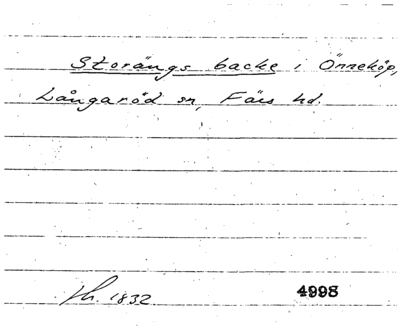 Storängs backe i Önneköp,
Långaröd sn, Färs hd.
1832
4998